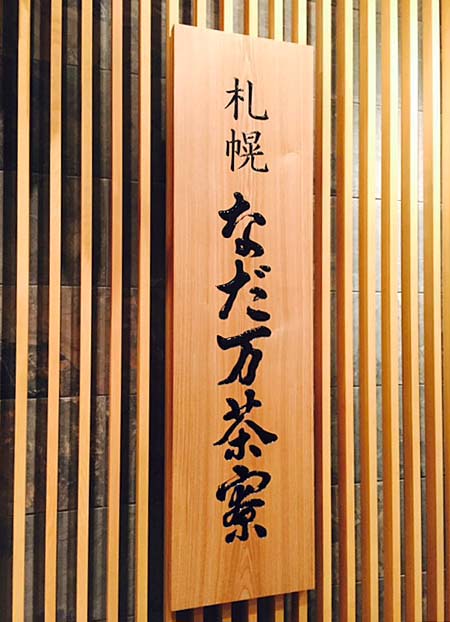 札幌 なだ万茶寮